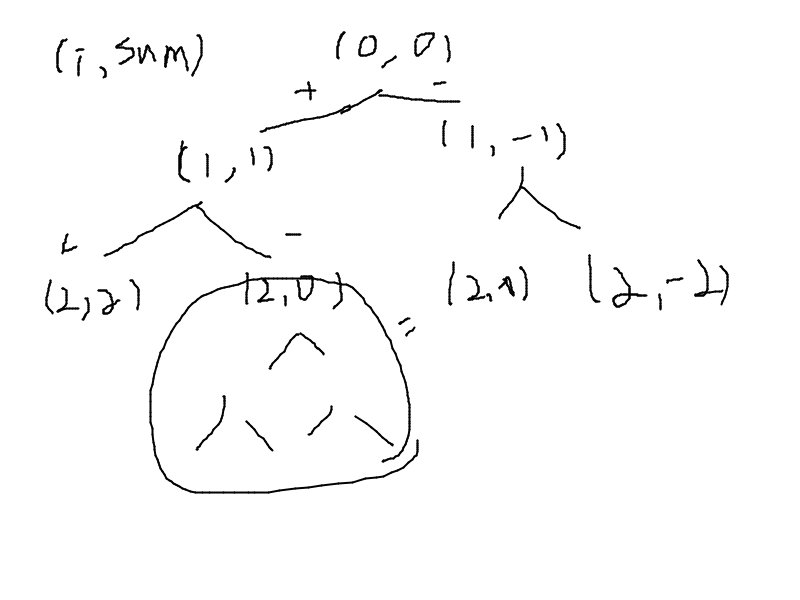 (i, sum)
(0, 0)
+ -
(1, 1)
(1, -1)
+ -
(2, 2)
(2, 0)
=
(2, -2)